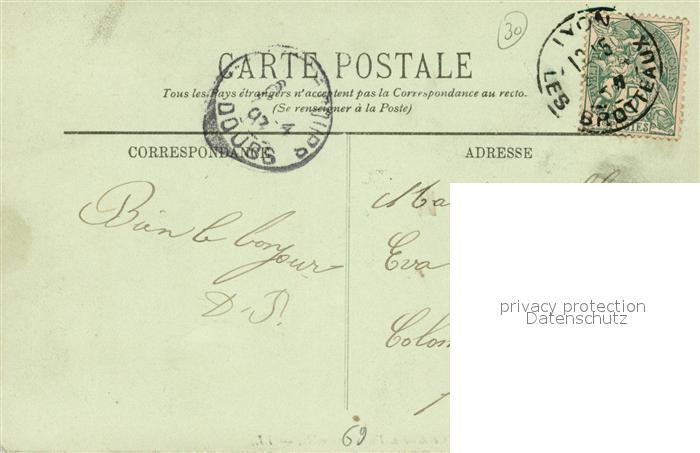 30
CARTE POSTALE
Tous les Pays étrangers n'acceptent pas la Correspondance au recto.
(Se renseigner à la Poste)
LYON
LES BROTTEAUX
DOUBS
CORRESPONDANCE
ADRESSE
Bien le bonjour
D.
Eva
Colom
privacy protection
Datenschutz
69